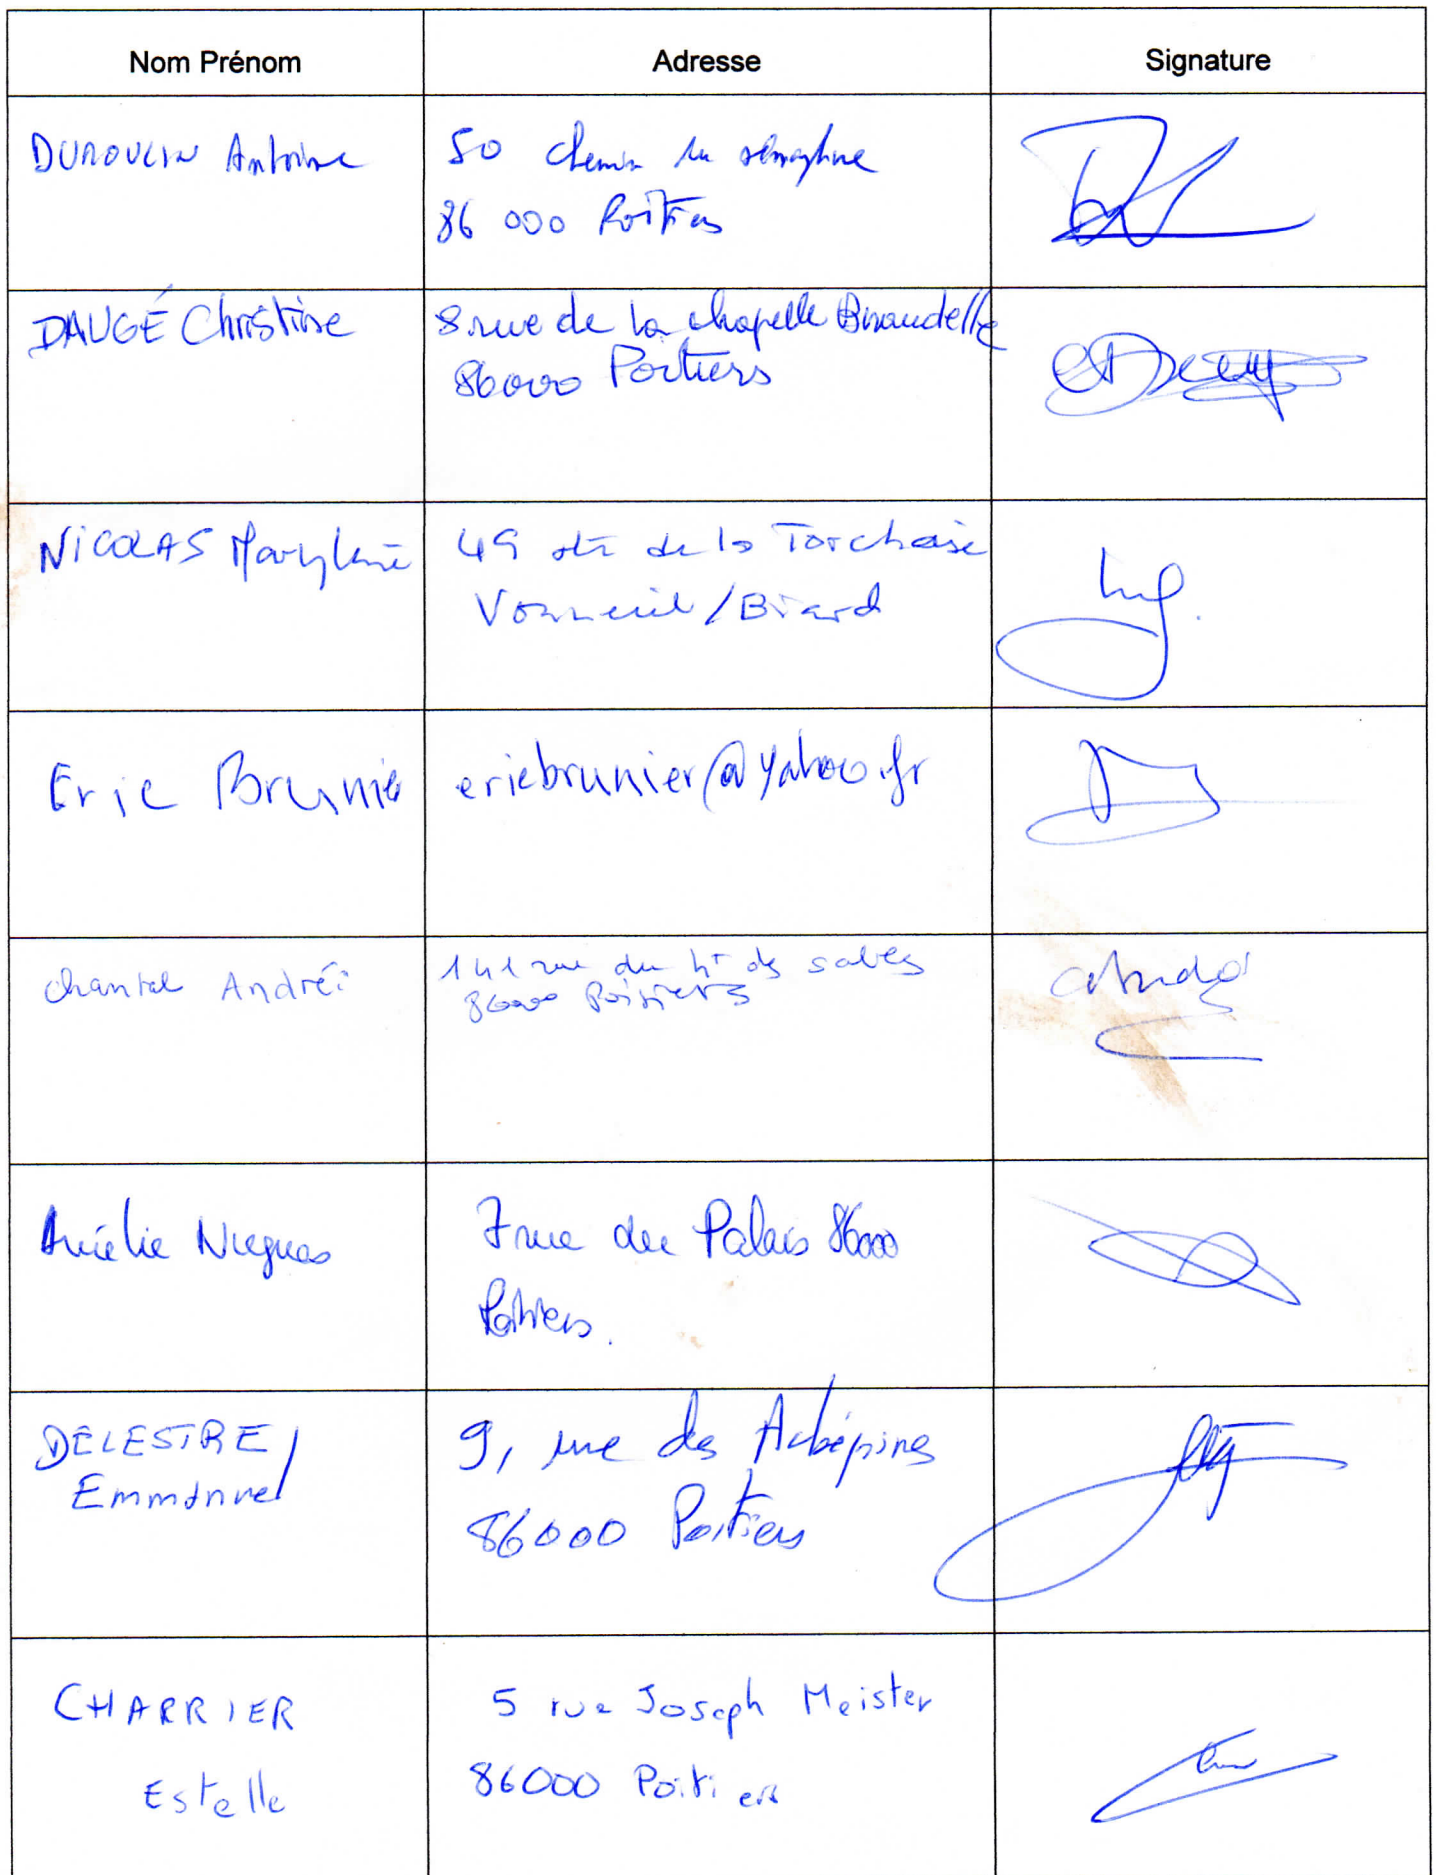 Nom Prénom
Adresse
Signature
DUMOULIN Antoine
50 chemin du
86 000 Poitiers
DAUGÉ Christine
8 rue de la chapelle
86000 Poitiers
NICOLAS Marylène
49 rte de la Torchaise
Vouneuil / Biard
Eric Brunier
ericbrunier@yahoo.fr
Chantal
141 rue du
86000 Poitiers
Amélie Nugues
7 rue du Palais 86000
Poitiers.
DELESTRE
Emmanuel
9, rue des Aubépines
86000 Poitiers
CHARRIER
5 rue Joseph Meister
Estelle
86000 Poitiers